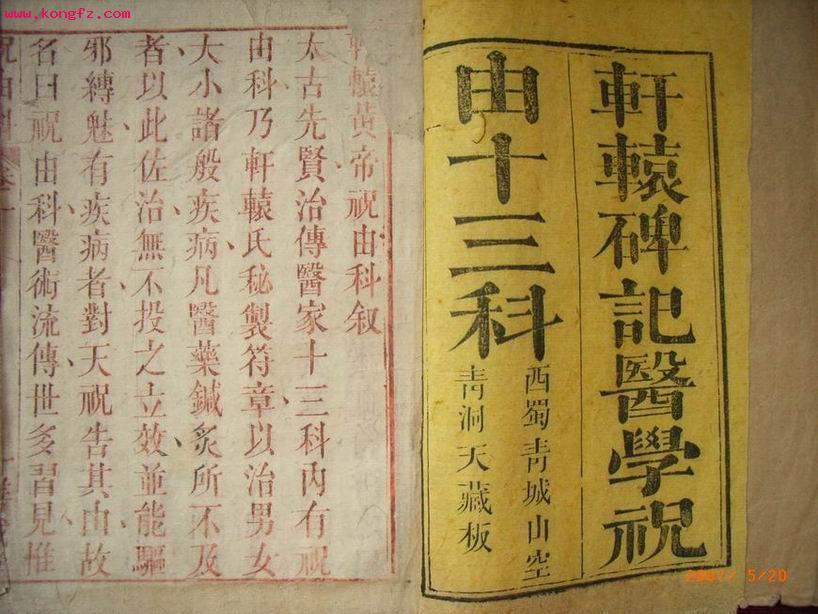 www.kongfz.com
軒轅碑記醫學祝
由十三科
西蜀青城山空
青洞天藏板
軒轅黃帝祝由科叙
太古先賢治傳醫家十三科內有祝
由科乃軒轅氏秘製符章以治男女
大小諸般疾病凡醫藥鍼炙所不及
者以此佐治無不投之立效並能驅
邪縛魅有疾病者對天祝告其由故
名曰祝由科醫術流傳世多習見惟
祝由科
2007/ 5/20